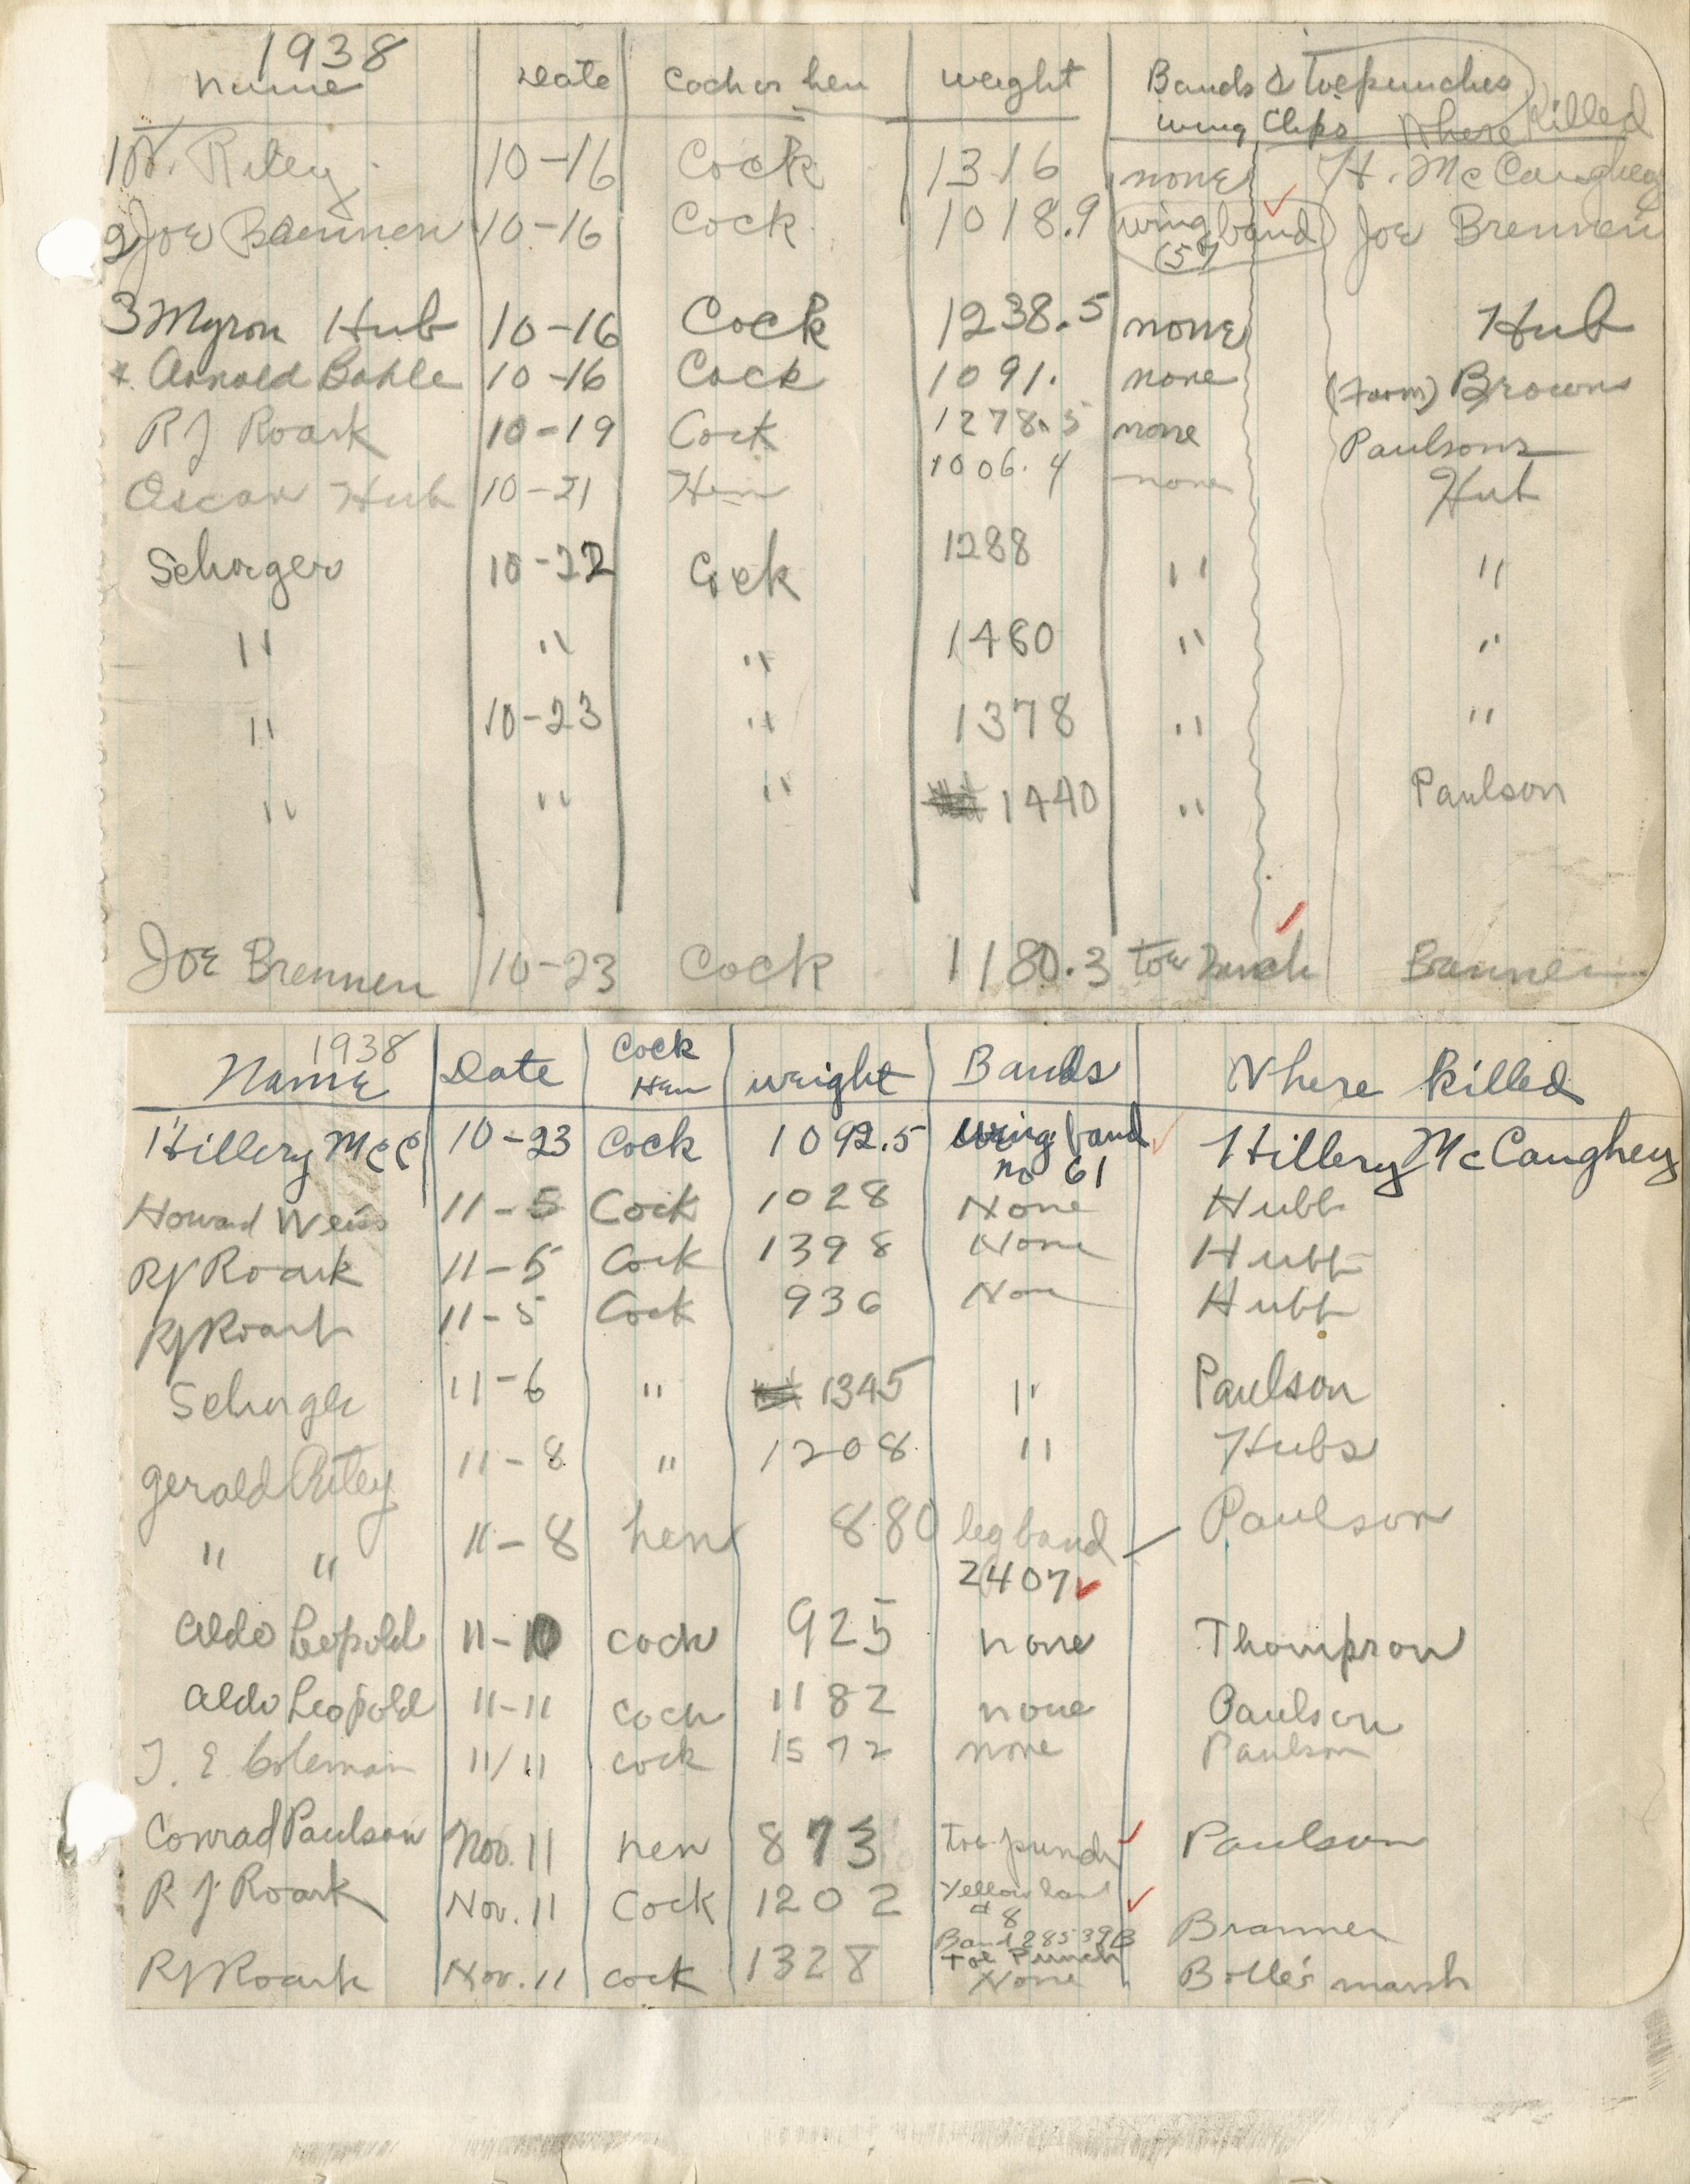 1938
Name Date Cock or hen weight Bands & toe punches
wing Clips Where Killed
1 Riley 10-16 Cock 1316 none H. McCaughey
2 Joe Brennen 10-16 Cock 1018.9 wing band Joe Brennen
(57)
3 Myron Hub 10-16 Cock 1238.5 none Hub
4. Arnold Bohle 10-16 Cock 1091. none (Farm) Browns
RJ Roark 10-19 Cock 1278.5 none Paulsons
Oscar Hub 10-21 Hen 1006.4 none Hub
Schorger 10-22 Cock 1288 " "
" " " 1480 " "
" 10-23 " 1378 " "
" " " 1440 " Paulson
Joe Brennen 10-23 Cock 1180.3 toe Punch Brannen
1938
Name Date Cock Hen weight Bands Where killed
Hillery McC 10-23 Cock 1092.5 wing band Hillery McCaughey
no 61
Howard Weiss 11-5 Cock 1028 None Hubb
RJ Roark 11-5 Cock 1398 None Hubb
RJ Roark 11-5 Cock 936 Non Hubb
Schorger 11-6 " 1345 " Paulson
Gerald Riley 11-8 " 1208 " Hubs
" " 11-8 hen 880 leg band Paulson
2407
Aldo Leopold 11-10 cock 925 none Thompson
Aldo Leopold 11-11 cock 1182 none Paulson
T. E. Coleman 11/11 cock 1572 none Paulson
Conrad Paulson Nov. 11 hen 873 Toe punch Paulson
R J Roark Nov. 11 Cock 1202 Yellow band
# 8
Band 28539B Branner
Toe Punch
RJ Roark Nov. 11 cock 1328 None Bolle's marsh